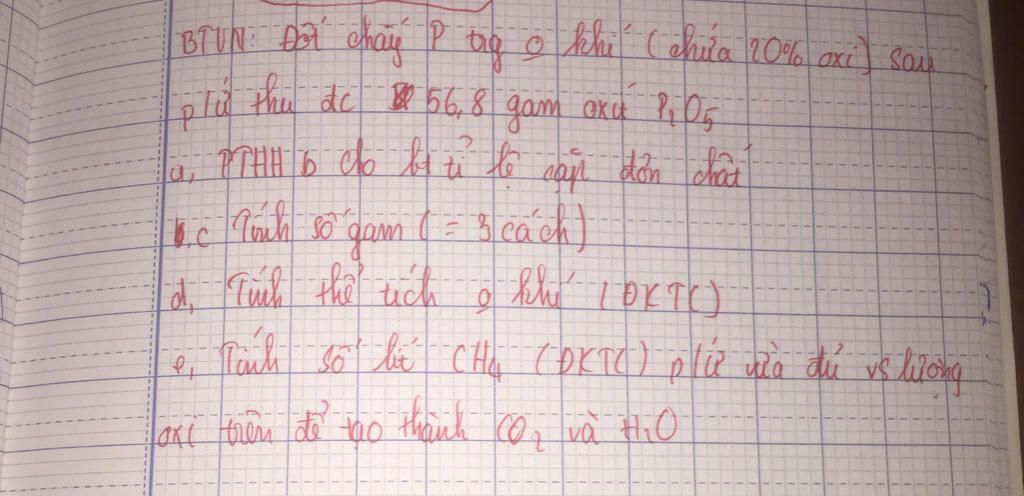 BTVN: Đốt cháy P tng o khí (chứa 20% oxi) sau
p/ứ thu đc 56,8 gam oxit P2O5
a, PTHH b cho bt tỉ lệ cặp đơn chất
c Tính số gam (= 3 cách)
d, Tính thể tích o khí (ĐKTC)
e, Tính số lít CH4 (ĐKTC) p/ứ vừa đủ vs lượng
oxi trên để tạo thành CO2 và H2O